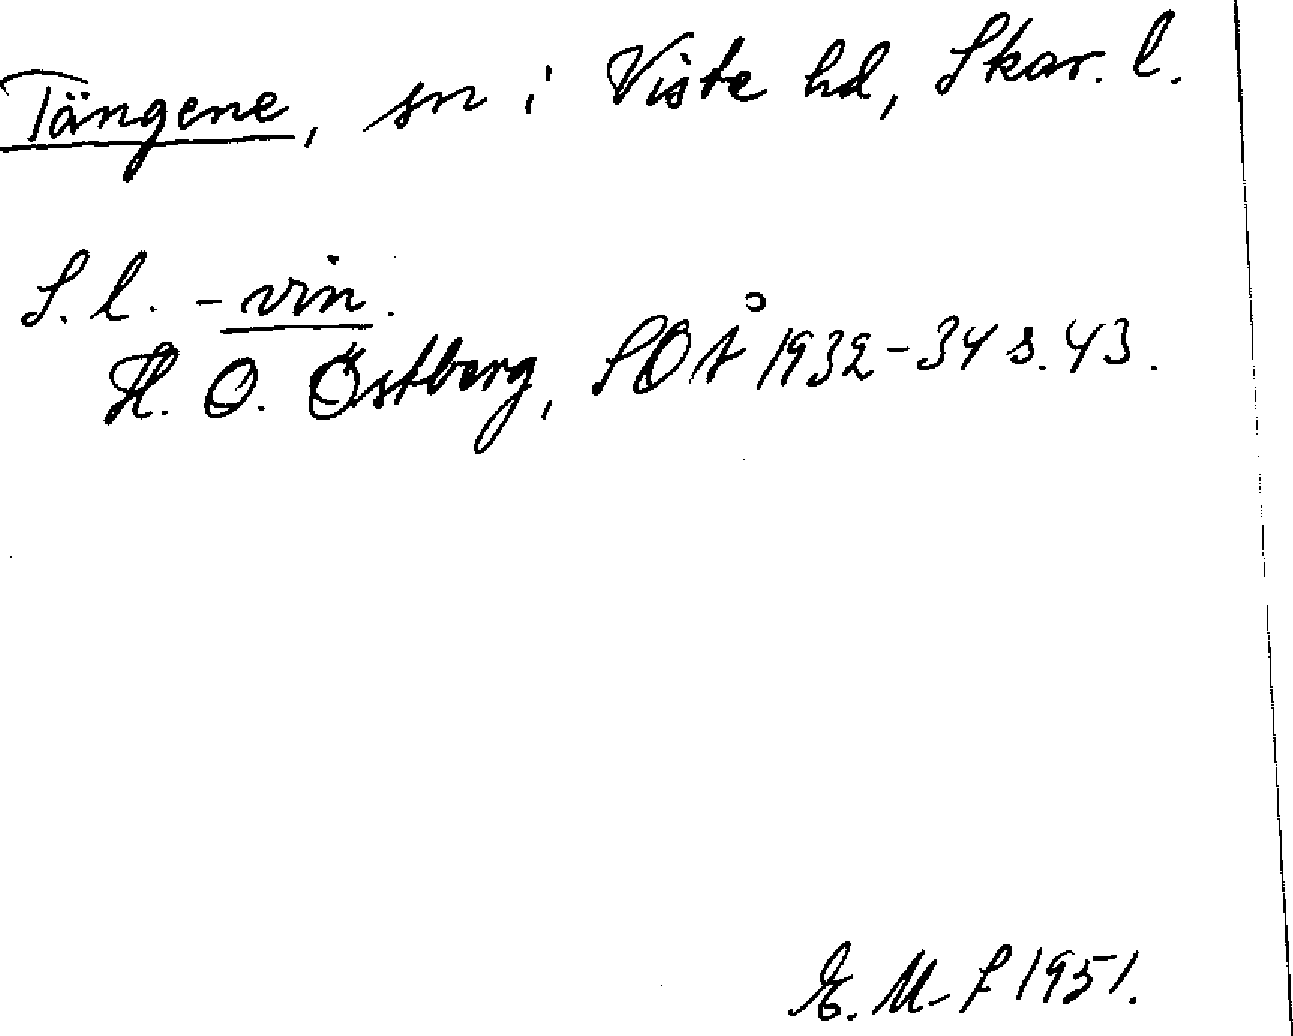 Tängene, sn i Viste hd, Skar. l.
S. l. -vin.
H. O. Östberg, SOÅ 1932-34 s. 43.
E. M-f 1951.